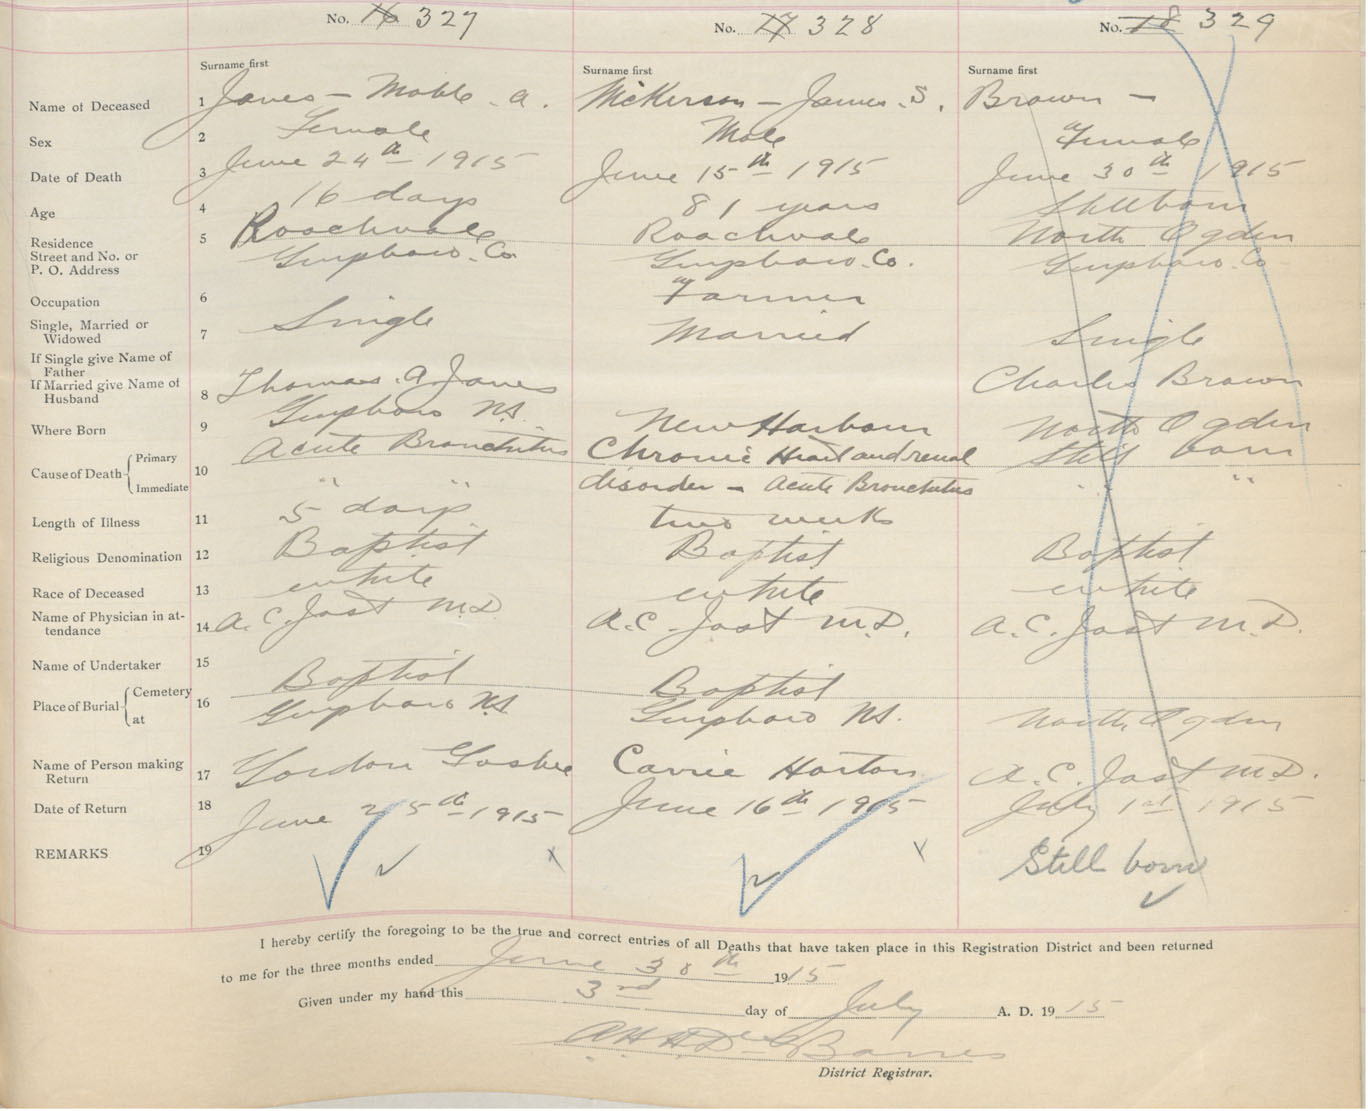 No. 16 327 No. 17 328 No. 18 329
Surname first Surname first Surname first
Name of Deceased 1 Jones - Mable. A. McKerson - James. S. Brown -
Sex 2 Female Male Female
Date of Death 3 June 24th 1915 June 15th 1915 June 30th 1915
Age 4 16 days 81 years Stillborn
Residence 5 Roachvale Roachvale North Ogden
Street and No. or Guysboro. Co. Guysboro. Co. Guysboro. Co.
P. O. Address
Occupation 6 Farmer
Single, Married or
Widowed 7 Single Married Single
If Single give Name of
Father
If Married give Name of
Husband 8 Thomas. A. Jones Charles Brown
Where Born 9 Guysboro N.S. New Harbour North Ogden
Cause of Death Primary 10 Acute Bronchitus Chronic Heart and renal Still born
Immediate " " disorder - Acute Bronchitus " "
Length of Illness 11 5 days two weeks
Religious Denomination 12 Baptist Baptist Baptist
Race of Deceased 13 white white white
Name of Physician in at-
tendance 14 A. C. Jost M.D. A.C. Jost M.D. A. C. Jost M.D.
Name of Undertaker 15
Place of Burial Cemetery 16 Baptist Baptist
at Guysboro N.S. Guysboro N.S. North Ogden
Name of Person making
Return 17 Gordon Gosbee Carrie Horton A. C. Jost M.D.
Date of Return 18 June 25th 1915 June 16th 1915 July 1st 1915
REMARKS 19 Still born
I hereby certify the foregoing to be the true and correct entries of all Deaths that have taken place in this Registration District and been returned
to me for the three months ended June 30th 1915
Given under my hand this 3rd day of July A. D. 1915
Barres
District Registrar.